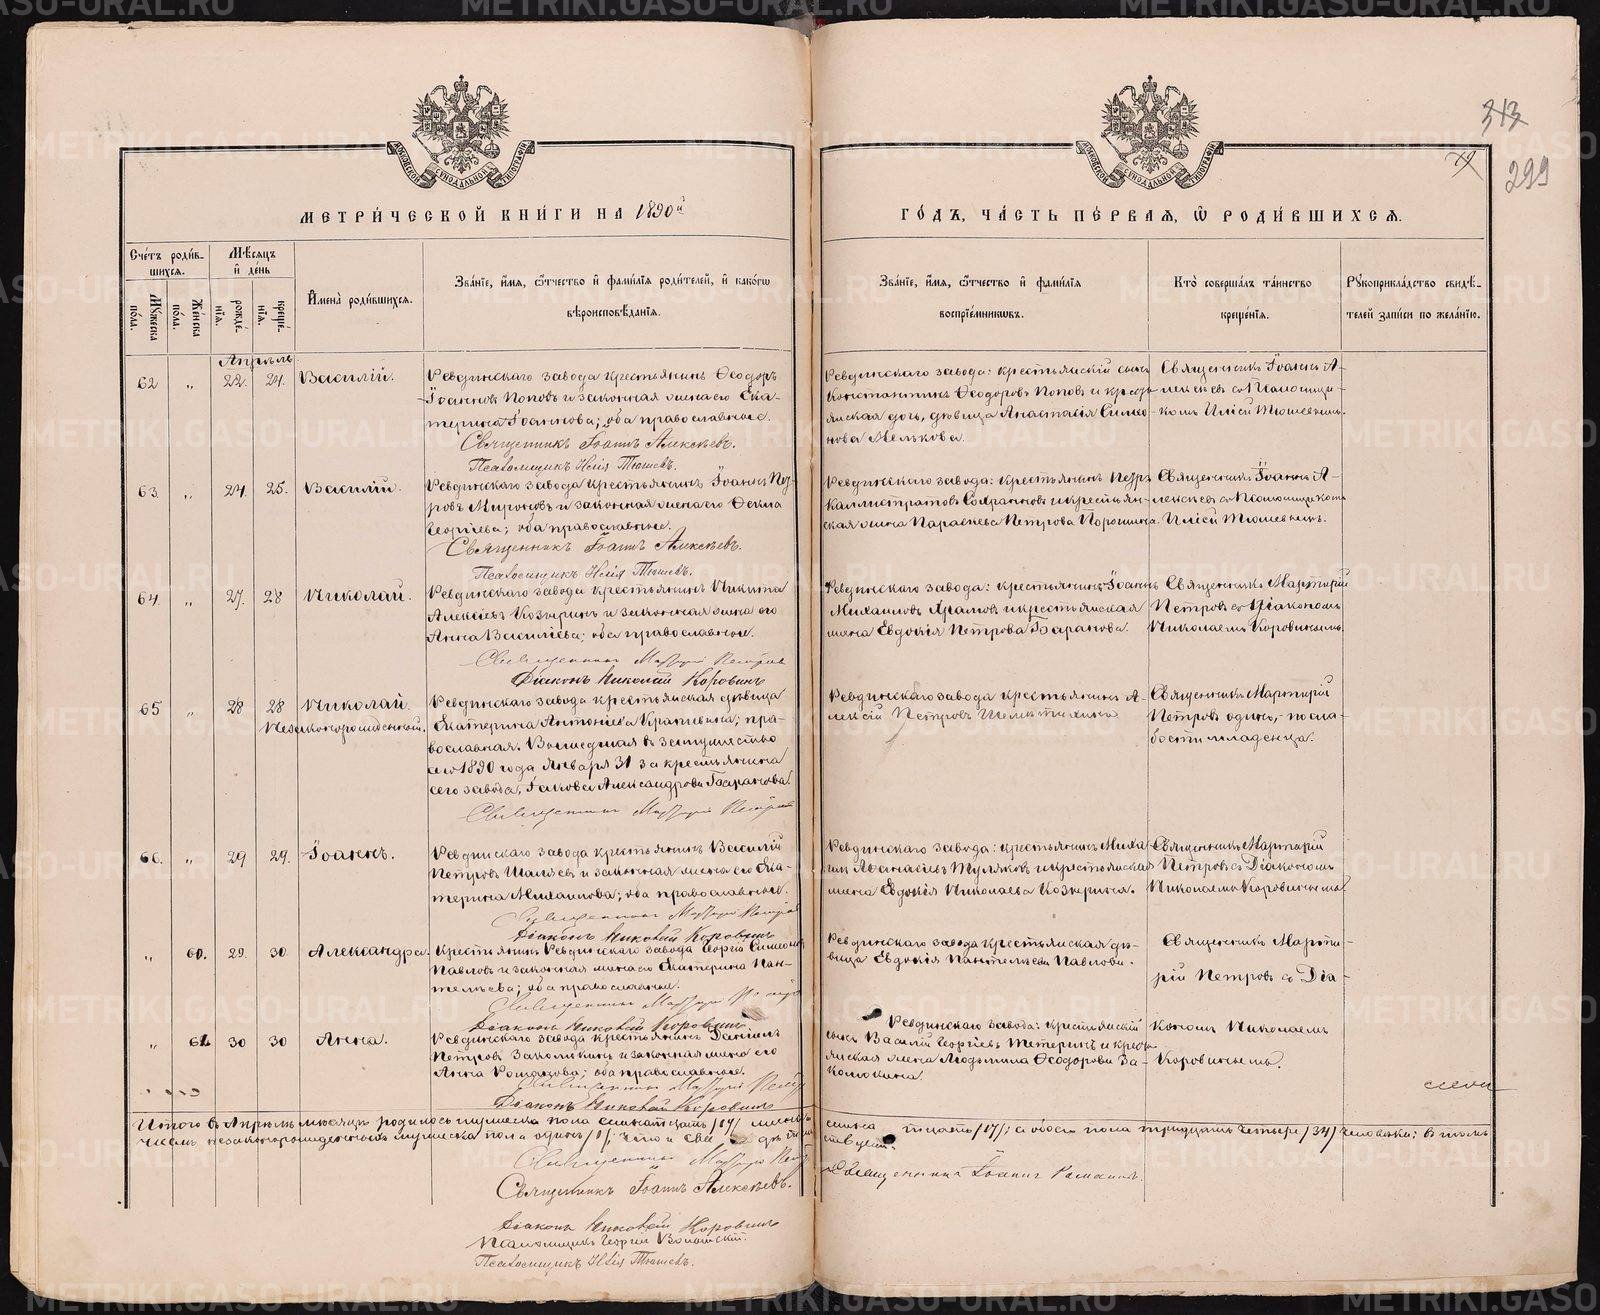 МЕТРИ́ЧЕСКОЙ КНИ́ГИ НА 1890й
ГО́ДЪ, ЧА́СТЬ ПЕ́РВАѦ, Ѽ РОДИ́ВШИХСѦ.
313
299
Сче́тъ роди́в-
шихсѧ.
Мѣ́сѧцъ
и҆ де́нь
Му́жеска по́ла.
Же́нска по́ла.
рожде́нїѧ.
креще́нїѧ.
И҆мена̀ роди́вшихсѧ.
Зва́нїе, и҆́мѧ, ѻ҆́тчество и҆ фами́лїѧ роди́телей, и҆ како́гѡ
вѣроисповѣ́данїѧ.
Зва́нїе, и҆́мѧ, ѻ҆́тчество и҆ фами́лїѧ
воспрїе́мниковъ.
Кто̀ соверша́лъ та́инство
креще́нїѧ.
Рꙋкоприкла́дство свидѣ́-
телей за́писи по жела́нїю.
Апрѣль
62 „ 22. 24. Василій.
Ревдинскаго завода крестьянинъ Ѳеодоръ
Іоанновъ Поповъ и законная жена его Ека-
терина Іоаннова; оба православные.
Священникъ Іоаннъ Алексѣевъ.
Псаломщикъ Илія Тюшевъ.
Ревдинскаго завода: крестьянскій сынъ
Константинъ Ѳеодоровъ Поповъ и кресть-
янская дочь, дѣвица Анастасія Симео-
нова Мелькова.
Священникъ Іоаннъ А-
лексѣевъ съ Псаломщи-
комъ Иліей Тюшевымъ.
63. „ 24. 25. Василій.
Ревдинскаго завода крестьянинъ Іоаннъ
ровъ Мироновъ и законная жена его Ѳекла
Георгіева; оба православные.
Священникъ Іоаннъ Алексѣевъ.
Псаломщикъ Илія Тюшевъ.
Ревдинскаго завода: крестьянинъ Петръ
Каллистратовъ и крестьян-
ская жена Параскева Петрова
Священникъ Іоаннъ А-
лексѣевъ съ Псаломщикомъ
Иліей Тюшевымъ.
64. „ 27. 28 Николай.
Ревдинскаго завода крестьянинъ Никита
Алексѣевъ Козыринъ и законная жена его
Анна Васильева; оба православные.
Священникъ Мартирій Петровъ
Діаконъ Николай Коровинъ
Ревдинскаго завода: крестьянинъ Іоаннъ
Михаиловъ и крестьянская
жена Евдокія Петрова Баранова.
Священникъ Мартирій
Петровъ съ Діакономъ
Николаемъ Коровинымъ.
65 „ 28 28 Николай.
Незаконнорожденный.
Ревдинскаго завода крестьянская дѣвица
Екатерина Антоніева Крапивина; пра-
вославная. Вышедшая въ замужество
сего 1890 года Января 31 за крестьянина
сего завода, Іакова Александрова Баранова.
Священникъ Мартирій Петровъ
Ревдинскаго завода крестьянинъ А-
лексій Петровъ
Священникъ Мартирій
Петровъ одинъ, – по сла-
бости младенца.
66. „ 29 29. Іоаннъ.
Ревдинскаго завода крестьянинъ Василій
Петровъ Шаляевъ и законная жена его Ека-
терина Михаилова; оба православные.
Священникъ Мартирій Петровъ
Діаконъ Николай Коровинъ
Ревдинскаго завода: крестьянинъ Миха-
илъ Аѳанасьевъ Туляковъ и крестьянская
жена Евдокія Николаева Козырина.
Священникъ Мартирій
Петровъ съ Діакономъ
Николаемъ Коровинымъ.
„ 60. 29. 30 Александра.
Крестьянинъ Ревдинскаго завода Георгій Симеоновъ
Павловъ и законная жена его Екатерина Пан-
телѣева; оба православные.
Священникъ Мартирій Петровъ
Діаконъ Николай Коровинъ
Ревдинскаго завода крестьянская дѣ-
вица Евдокія Пантелѣева Павлова.
Священникъ Марти-
рій Петровъ съ Діа-
„ 61. 30 30 Анна.
Ревдинскаго завода крестьянинъ Даніилъ
Петровъ Заколюкинъ и законная жена его
Анна Романова; оба православные.
Священникъ Мартирій Петровъ
Діаконъ Николай Коровинъ
Ревдинскаго завода: крестьянскій
сынъ Василій Георгіевъ Тетеринъ и кресть-
янская жена Людмила Ѳеодорова За-
колюкина.
кономъ Николаемъ
Коровинымъ.
Итого въ Апрѣлѣ мѣсяцѣ родилось мужеска пола семнадцать /17/ женска
семнадцать /17/; а обоего пола тридцать четыре /34/ человѣка; въ томъ
числѣ незаконнорожденныхъ мужеска пола одинъ /1/.
Священникъ Мартирій Петровъ
Священникъ Іоаннъ Алексѣевъ.
Священникъ Іоаннъ
Діаконъ Николай Коровинъ
Псаломщикъ Георгій
Псаломщикъ Илія Тюшевъ.